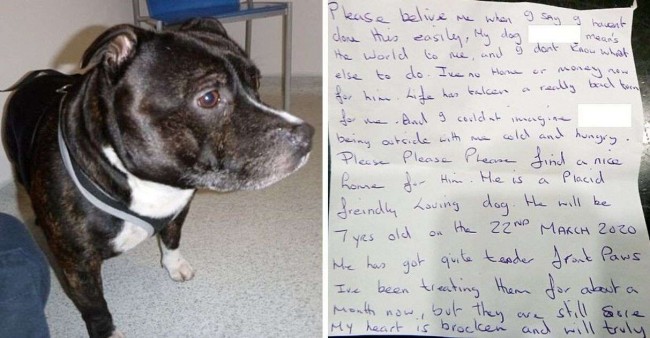 Please belive me when I say I havent
done this easily, My dog means
the world to me, and I dont know what
else to do. I've no Home or money now
for him. Life has taken a really bad turn
for me. And I couldnt imagine
being outside with me cold and hungry.
Please Please Please find a nice
home for Him. He is a Placid
freindly Loving dog. He will be
7 yrs old on the 22ND MARCH 2020
He has got quite tender front Paws
I've been treating them for about a
Month now, but they are still sore
My heart is brocken and will truly